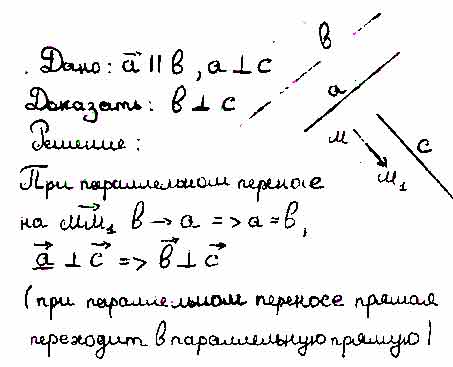 Дано: a⃗ || в, a ⊥ c
Доказать: в ⊥ c
Решение:
При параллельном переносе
на MM₁⃗ в → a => a = в,
a⃗ ⊥ c⃗ => в⃗ ⊥ c⃗
(при параллельном переносе прямая
переходит в параллельную прямую)
в
a
M
c
M₁